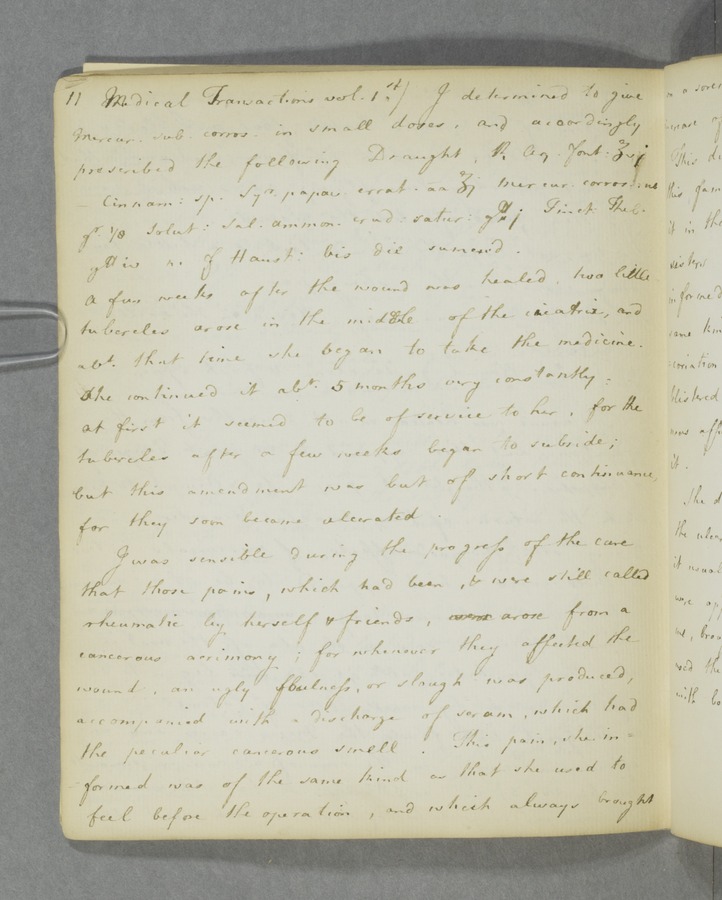 11 Medical Transactions vol. 1.st) I determined to give
mercur. sub. corros. in small doses, and accordingly
prescribed the following Draught, ℞ Aq. Font. ℥vj
Cinnam: sp. Syr. papav. errat. aa ʒj mercur. corros:
gr. 1/8 solut: sal. ammon. crud: satur: gtt j Tinct. Theb.
gtt iv m. f Haust: bis die sumend.
A few weeks after the wound was healed, two little
tubercles arose in the middle of the cicatrix, and
abt. that time she began to take the medicine.
She continued it abt. 5 months very constantly:
at first it seemed to be of service to her, for the
tubercles after a few weeks began to subside;
but this amendment was but of short continuance,
for they soon became ulcerated.
I was sensible during the progress of the cure
that those pains, which had been, & were still called
rheumatic by herself & friends, arose from a
cancerous acrimony; for whenever they affected the
wound, an ugly foulness, or slough was produced,
accompanied with a discharge of serum, which had
the peculiar cancerous smell. This pain, she in=
formed was of the same kind as that she used to
feel before the operation, and which always brought